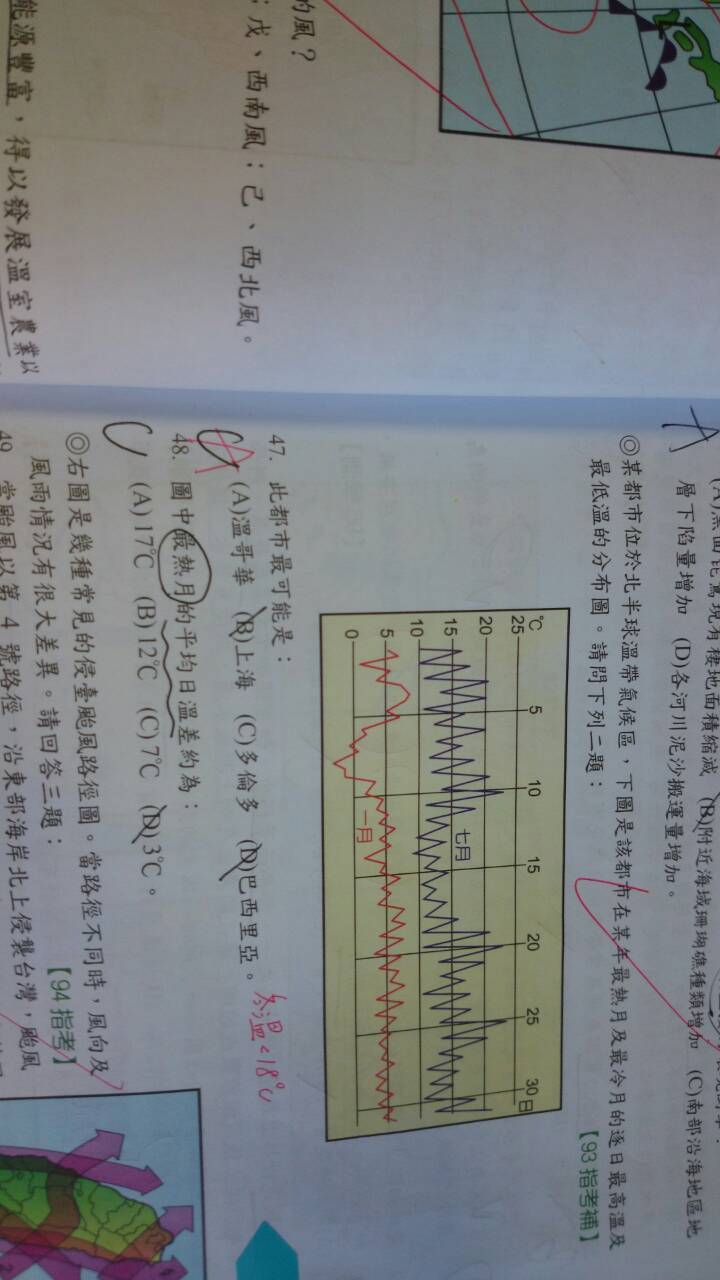 的風？
；戊、西南風；己、西北風。
能源豐富，得以發展溫室農業以
層下陷量增加 (D)各河川泥沙搬運量增加。
(B)附近海域珊瑚礁種類增加 (C)南部沿海地區地
◎某都市位於北半球溫帶氣候區，下圖是該都市在某年最熱月及最冷月的逐日最高溫及
最低溫的分布圖。請問下列二題：
【93指考補】
℃
25
20
15
10
5
0
5
10
15
20
25
30日
七月
一月
47. 此都市最可能是：
(A)溫哥華 (B)上海 (C)多倫多 (D)巴西里亞。
冬溫<18℃
48. 圖中最熱月的平均日溫差約為：
(A)17℃ (B)12℃ (C)7℃ (D)3℃。
◎右圖是幾種常見的侵臺颱風路徑圖。當路徑不同時，風向及
風雨情況有很大差異。請回答三題：
【94指考】
49. 當颱風以第 4 號路徑，沿東部海岸北上侵襲台灣，颱風